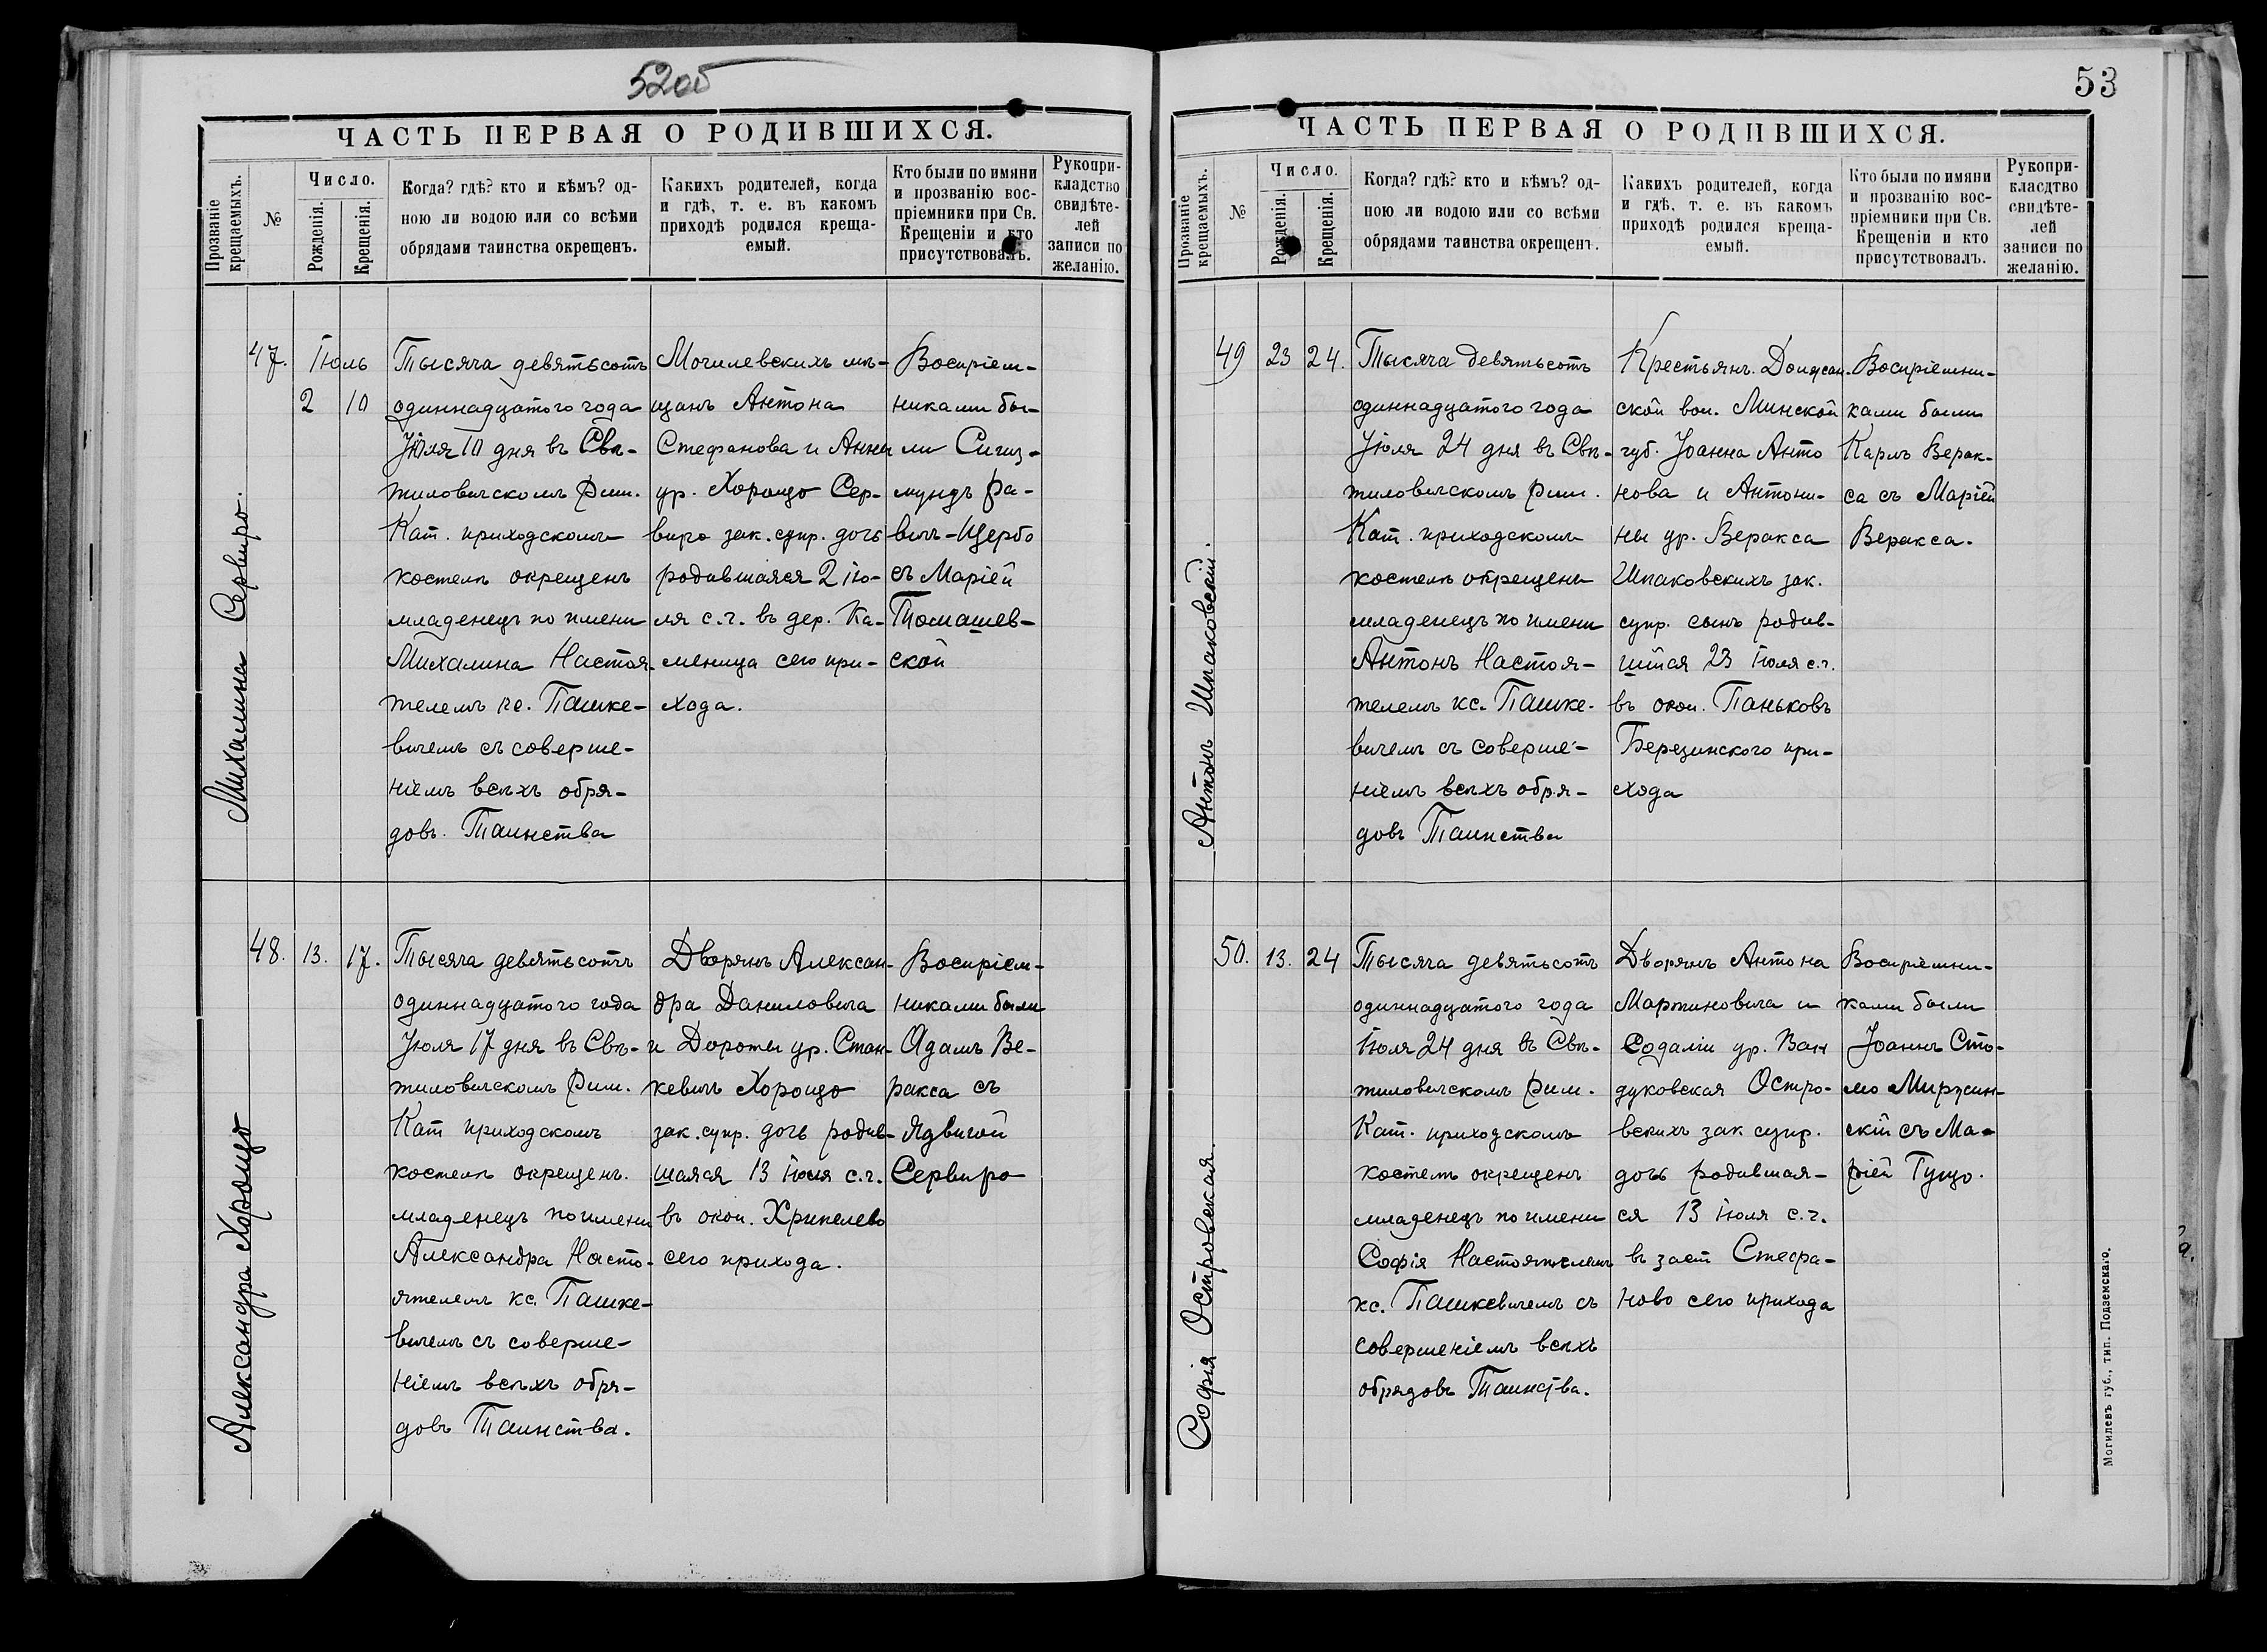 52об
ЧАСТЬ ПЕРВАЯ О РОДИВШИХСЯ.
Прозваніе крещаемыхъ.
№
Число.
Рожденія.
Крещенія.
Когда? гдѣ? кто и кѣмъ? од-
ною ли водою или со всѣми
обрядами таинства окрещенъ.
Какихъ родителей, когда
и гдѣ, т. е. въ какомъ
приходѣ родился креща-
емый.
Кто были по имяни
и прозванію вос-
пріемники при Св.
Крещеніи и кто
присутствовалъ.
Рукопри-
кладство
свидѣте-
лей
записи по
желанію.
Михалина Сервиро.
47.
Іюль
2 10
Тысяча девятьсотъ
одиннадцатого года
Іюля 10 дня въ Свѣ-
тиловичскомъ Рим.
Кат. приходскомъ
костелѣ окрещенъ
младенецъ по имени
Михалина Настоя-
телемъ кс. Пашке-
вичемъ съ соверше-
ніемъ всѣхъ обря-
довъ. Таинства
Могилевскихъ мѣ-
щанъ Антона
Стефанова и Анны
ур. Хорощо Сер-
виро зак. супр. дочь
родившаяся 2 ію-
ля с.г. въ дер. Ка-
меница сего при-
хода.
Воспріем-
никами бы-
ли Сигиз-
мундъ Ра-
вичъ-Щербо
съ Маріей
Томашев-
ской
Александра Хорощо
48. 13. 17.
Тысяча девятьсотъ
одиннадцатого года
Іюля 17 дня въ Свѣ-
тиловичскомъ Рим.
Кат приходскомъ
костелѣ окрещенъ.
младенецъ по имени
Александра Насто-
ятелемъ кс. Пашке-
вичемъ съ соверше-
ніемъ всѣхъ обря-
довъ Таинства.
Дворянъ Алексан-
дра Даниловича
и Дороты ур. Стан-
кевичъ Хорощо
зак. супр. дочь родив-
шаяся 13 Іюля с.г.
въ окол. Хрипелево
сего прихода.
Воспріем-
никами были
Адамъ Ве-
ракса съ
Ядвигой
Сервиро
53
ЧАСТЬ ПЕРВАЯ О РОДИВШИХСЯ.
Прозваніе крещаемыхъ.
№
Число.
Рожденія.
Крещенія.
Когда? гдѣ? кто и кѣмъ? од-
ною ли водою или со всѣми
обрядами таинства окрещенъ.
Какихъ родителей, когда
и гдѣ, т. е. въ какомъ
приходѣ родился креща-
емый.
Кто были по имяни
и прозванію вос-
пріемники при Св.
Крещеніи и кто
присутствовалъ.
Рукопри-
класдтво
свидѣте-
лей
записи по
желанію.
Антонъ Шпаковскій.
49 23 24.
Тысяча девятьсотъ
одиннадцатого года
Іюля 24 дня въ Свѣ-
тиловичскомъ Рим.
Кат. приходскомъ
костелѣ окрещенъ
младенецъ по имени
Антонъ Настоя-
телемъ кс. Пашке-
вичемъ съ соверше-
ніемъ всѣхъ обря-
довъ Таинства
Крестьянъ.
ской вол. Минской
губ. Іоанна Анто
нова и Антони-
ны ур. Веракса
Шпаковскихъ зак.
супр. сынъ родив-
шійся 23 Іюля с.г.
въ окол. Паньковъ
Березинского при-
хода
Воспріемни-
ками были
Карлъ Верак-
са съ Маріей
Веракса.
Софія Островская.
50. 13. 24
Тысяча девятьсотъ
одиннадцатого года
Іюля 24 дня въ Свѣ-
тиловичскомъ Рим.
Кат. приходскомъ
костелѣ окрещенъ
младенецъ по имени
Софія Настоятелемъ
кс. Пашкевичемъ съ
совершеніемъ всѣхъ
обрядовъ Таинства.
Дворянъ Антона
Мартиновича и
ур. Ван
дуковская Остро-
вскихъ зак супр.
дочь родившая-
ся 13 Іюля с.г.
въ заст Стефа-
ново сего прихода
Воспріемни-
ками были
Іоаннъ Сто-
мо Миржин-
скій съ Ма-
ріей Гущо.
Могилевъ губ., тип. Подземскаго.